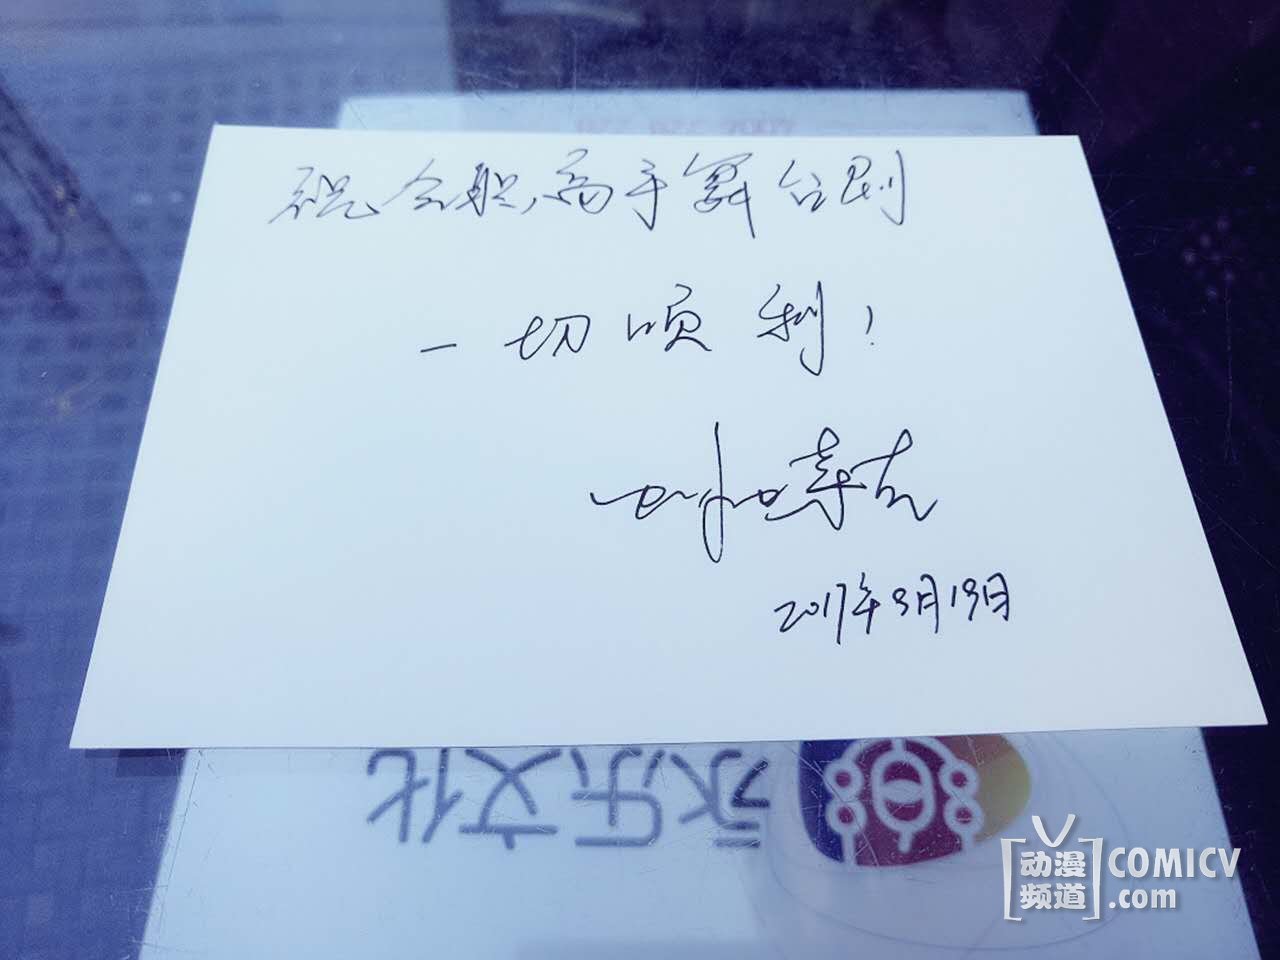 祝全职高手舞台剧
一切顺利!
2017年9月19日
永乐文化
动漫
频道
COMICV
.com